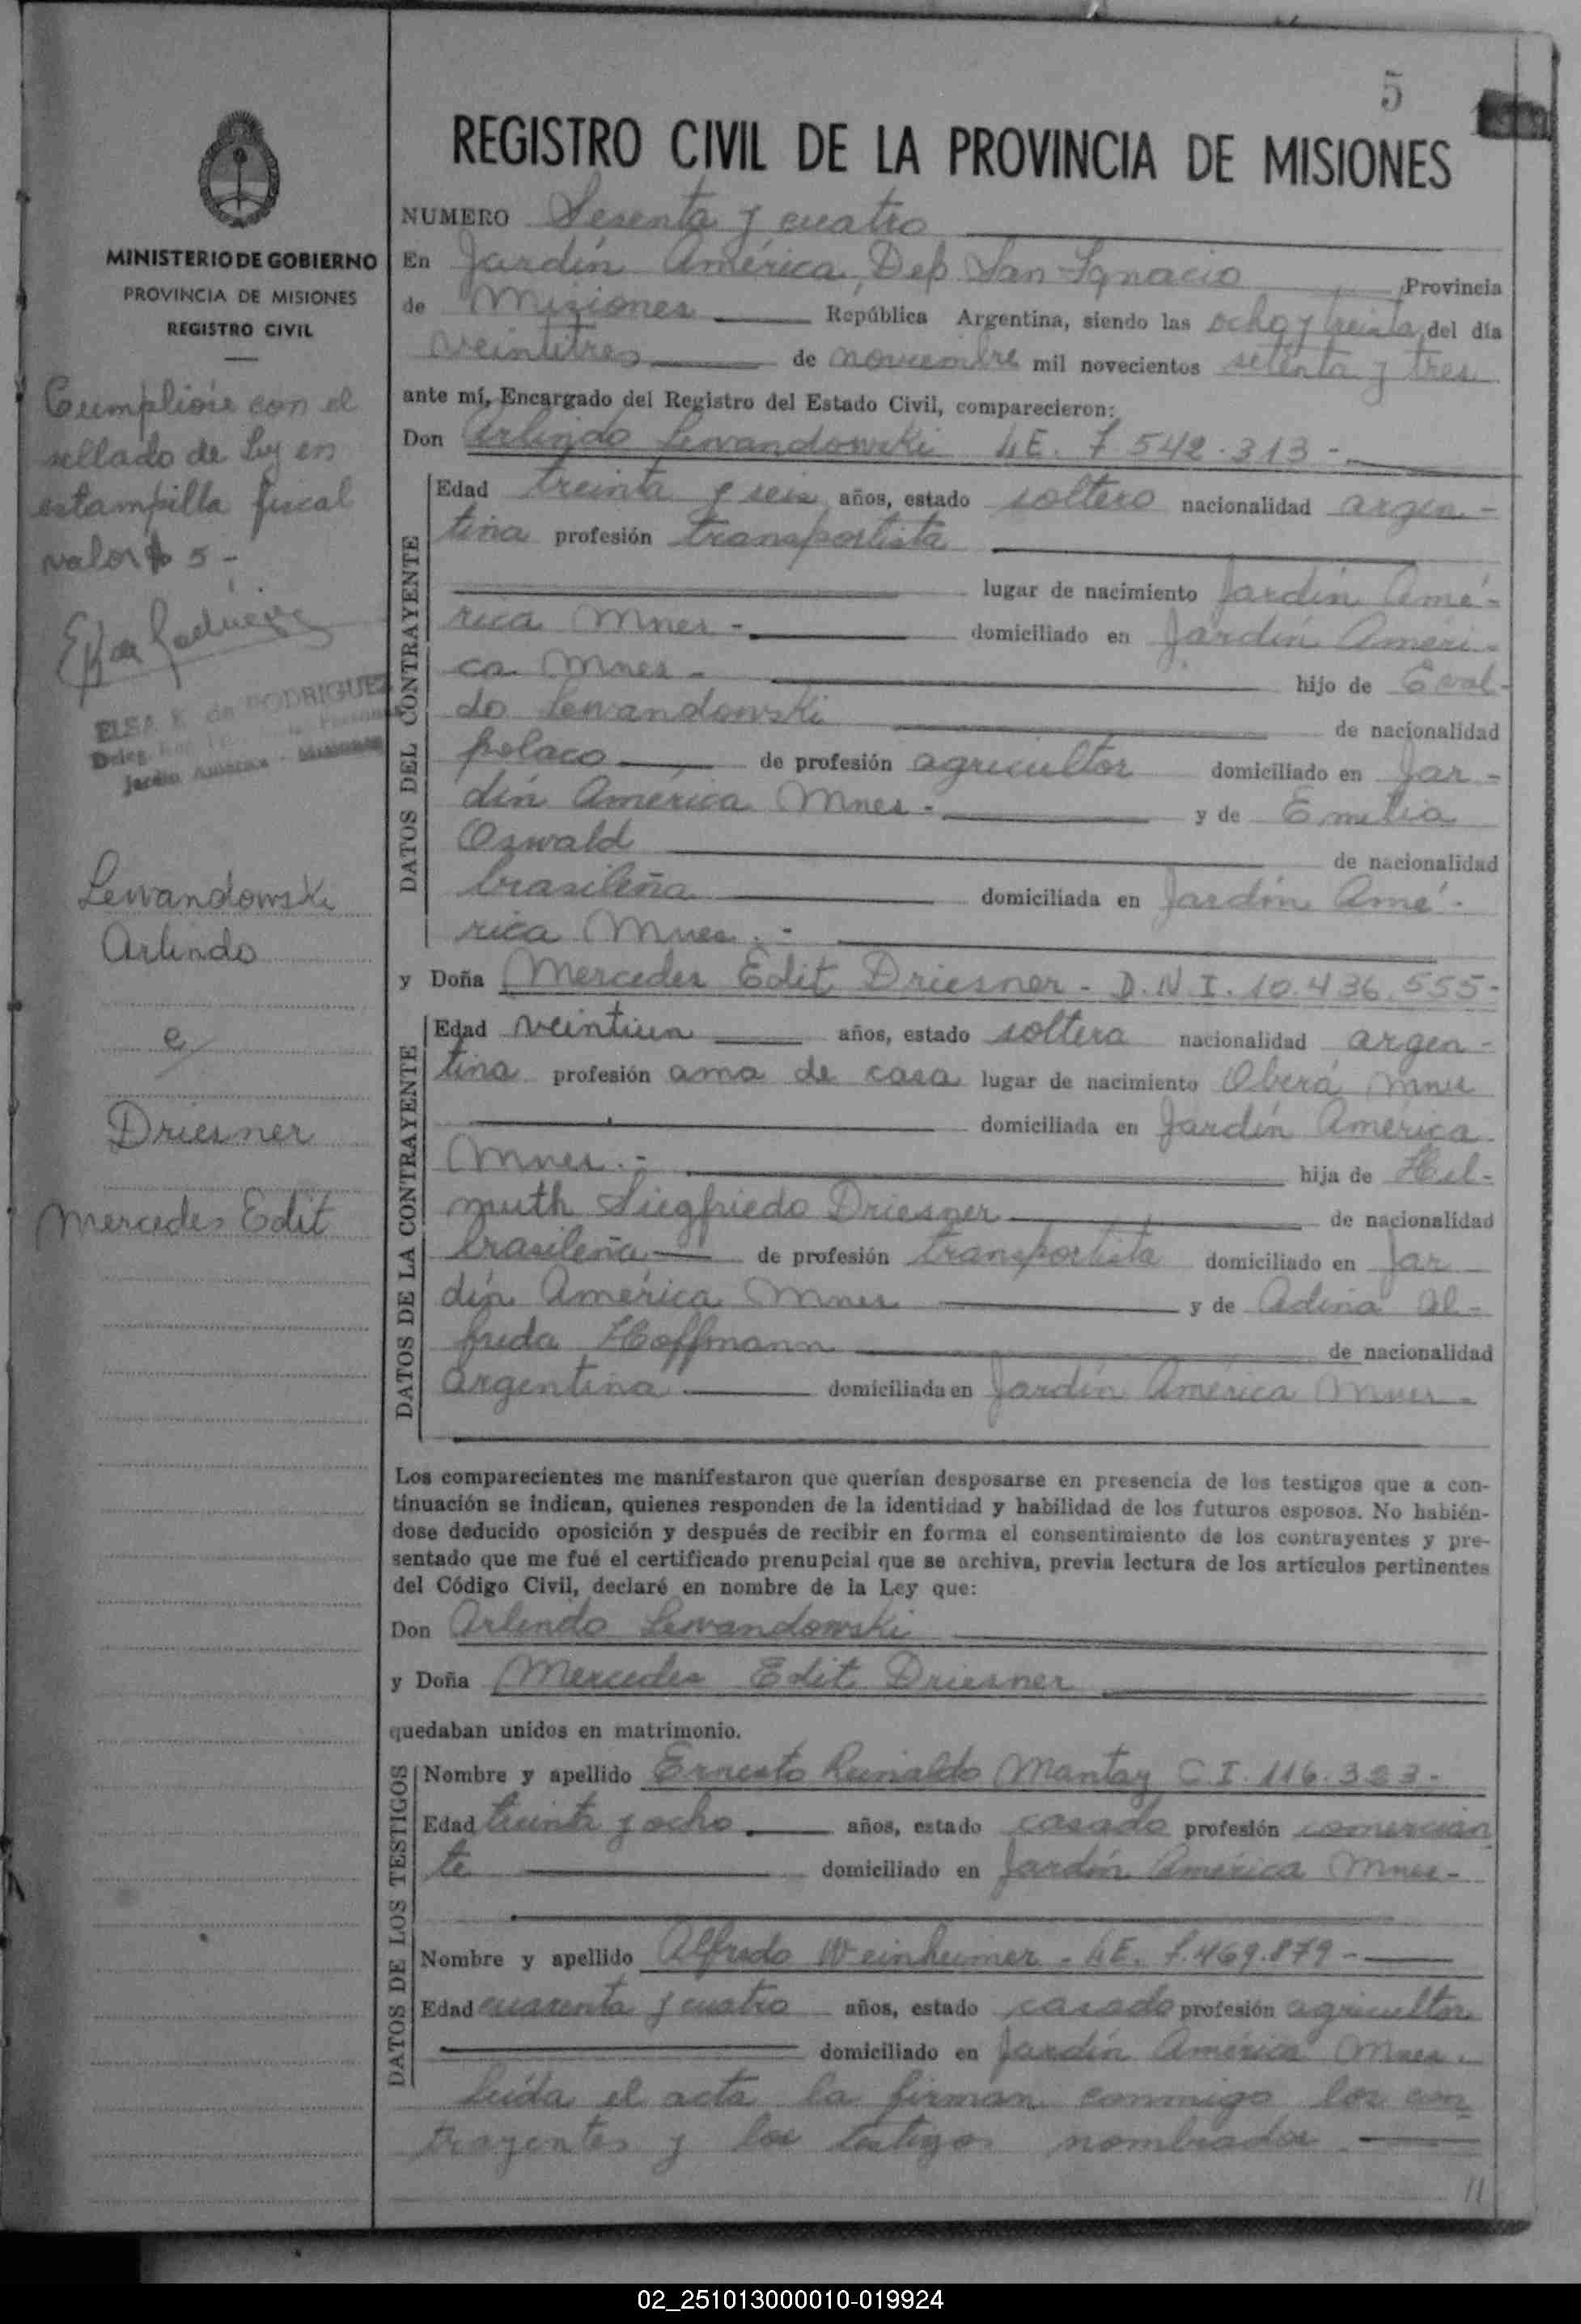 5
REGISTRO CIVIL DE LA PROVINCIA DE MISIONES
MINISTERIO DE GOBIERNO
PROVINCIA DE MISIONES
REGISTRO CIVIL
Cumplióse con el
sellado de Ley en
estampilla fiscal
valor $ 5 -
ELSA E. de RODRIGUEZ
Jardín América - Misiones
Lewandowski
Arlindo
e/
Driesner
Mercedes Edit
NUMERO Sesenta y cuatro
En Jardín América, Dep San Ignacio Provincia
de Misiones República Argentina, siendo las ocho y treinta del día
veintitres de noviembre mil novecientos setenta y tres
ante mí, Encargado del Registro del Estado Civil, comparecieron:
Don Arlindo Lewandowski LE. 7.542.313 -
DATOS DEL CONTRAYENTE
Edad treinta y seis años, estado soltero nacionalidad argen-
tina profesión transportista
lugar de nacimiento Jardín Amé-
rica Mnes - domiciliado en Jardín Améri-
ca Mnes - hijo de Eval-
do Lewandowski de nacionalidad
polaco de profesión agricultor domiciliado en Jar-
dín América Mnes - y de Emilia
Oswald de nacionalidad
brasileña domiciliada en Jardín Amé-
rica Mnes. -
y Doña Mercedes Edit Driesner - D.N.I. 10.436.555-
DATOS DE LA CONTRAYENTE
Edad veintiun años, estado soltera nacionalidad argen-
tina profesión ama de casa lugar de nacimiento Oberá Mnes
domiciliada en Jardín América
Mnes. - hija de Hel-
muth Siegfriedo Driesner de nacionalidad
brasileña de profesión transportista domiciliado en Jar
dín América Mnes y de Adina Al-
freda Hoffmann de nacionalidad
argentina domiciliada en Jardín América Mnes -
Los comparecientes me manifestaron que querían desposarse en presencia de los testigos que a con-
tinuación se indican, quienes responden de la identidad y habilidad de los futuros esposos. No habién-
dose deducido oposición y después de recibir en forma el consentimiento de los contrayentes y pre-
sentado que me fué el certificado prenupcial que se archiva, previa lectura de los artículos pertinentes
del Código Civil, declaré en nombre de la Ley que:
Don Arlindo Lewandowski
y Doña Mercedes Edit Driesner
quedaban unidos en matrimonio.
DATOS DE LOS TESTIGOS
Nombre y apellido Ernesto Reinaldo Mantay C.I. 116.323-
Edad treinta y ocho años, estado casado profesión comercian
te domiciliado en Jardín América Mnes-
Nombre y apellido Alfredo Weinheimer - LE. 7.469.879 -
Edad cuarenta y cuatro años, estado casado profesión agricultor
domiciliado en Jardín América Mnes.
Leída el acta la firman conmigo los con
trayentes y los testigos nombrados.
//
02_251013000010-019924